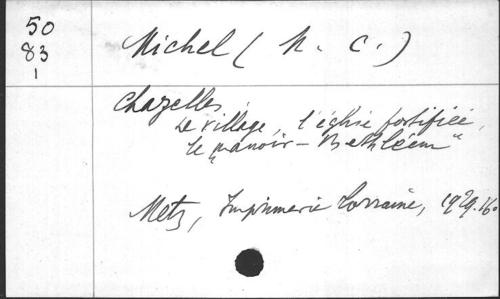 50
83
1
Michel (N. C.)
Chazelles,
Le village, l'église fortifiée,
le „manoir - Bethléem"
Metz, Imprimerie Lorraine, 1929. 16°